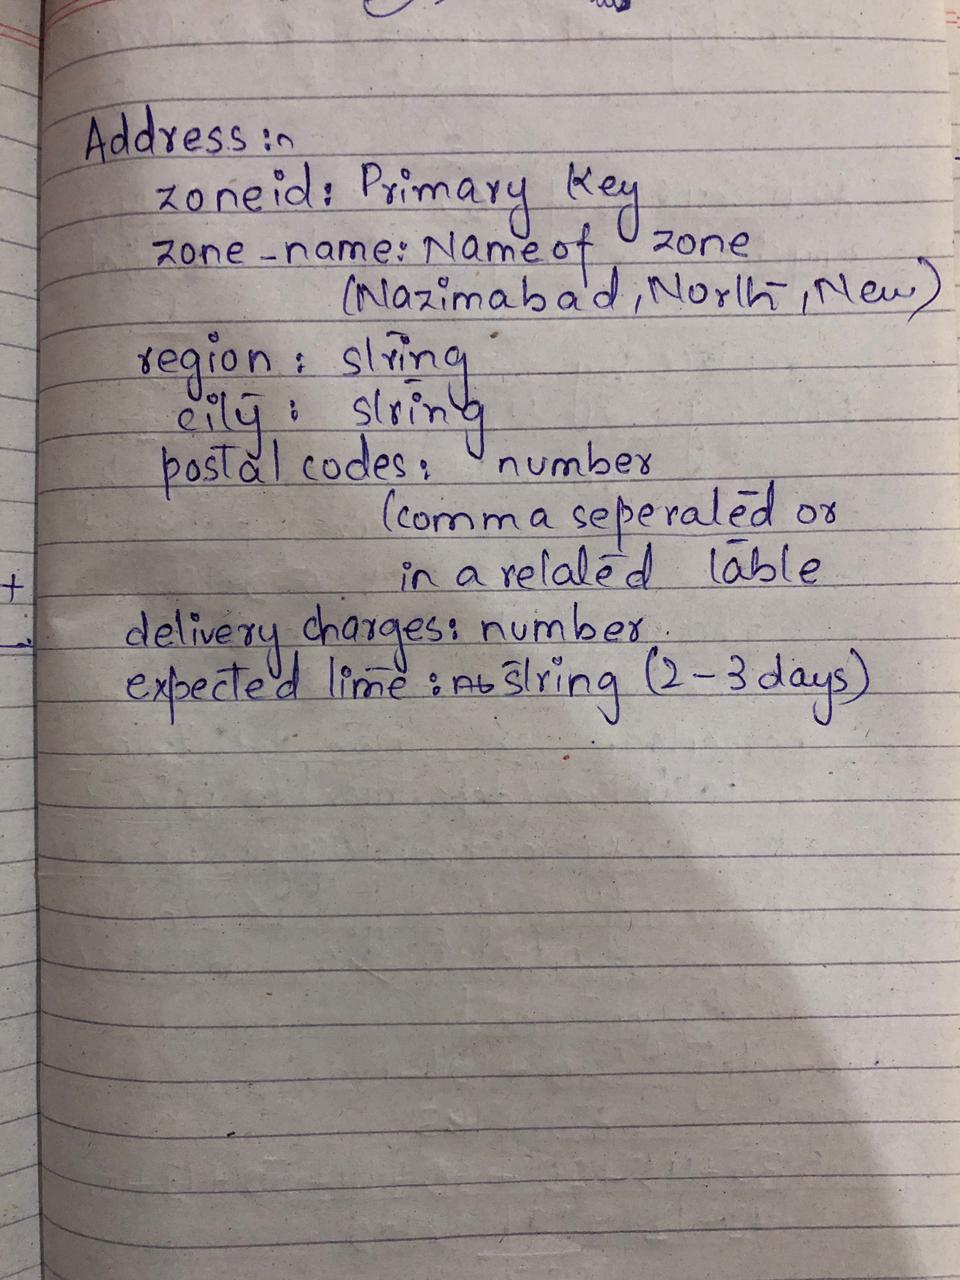 Address :
zoneid : Primary Key
zone_name : Name of zone
(Nazimabad, North, New)
region : string
city : string
postal codes : number
(comma seperated or
in a related table
delivery charges : number
expected time : string (2-3 days)